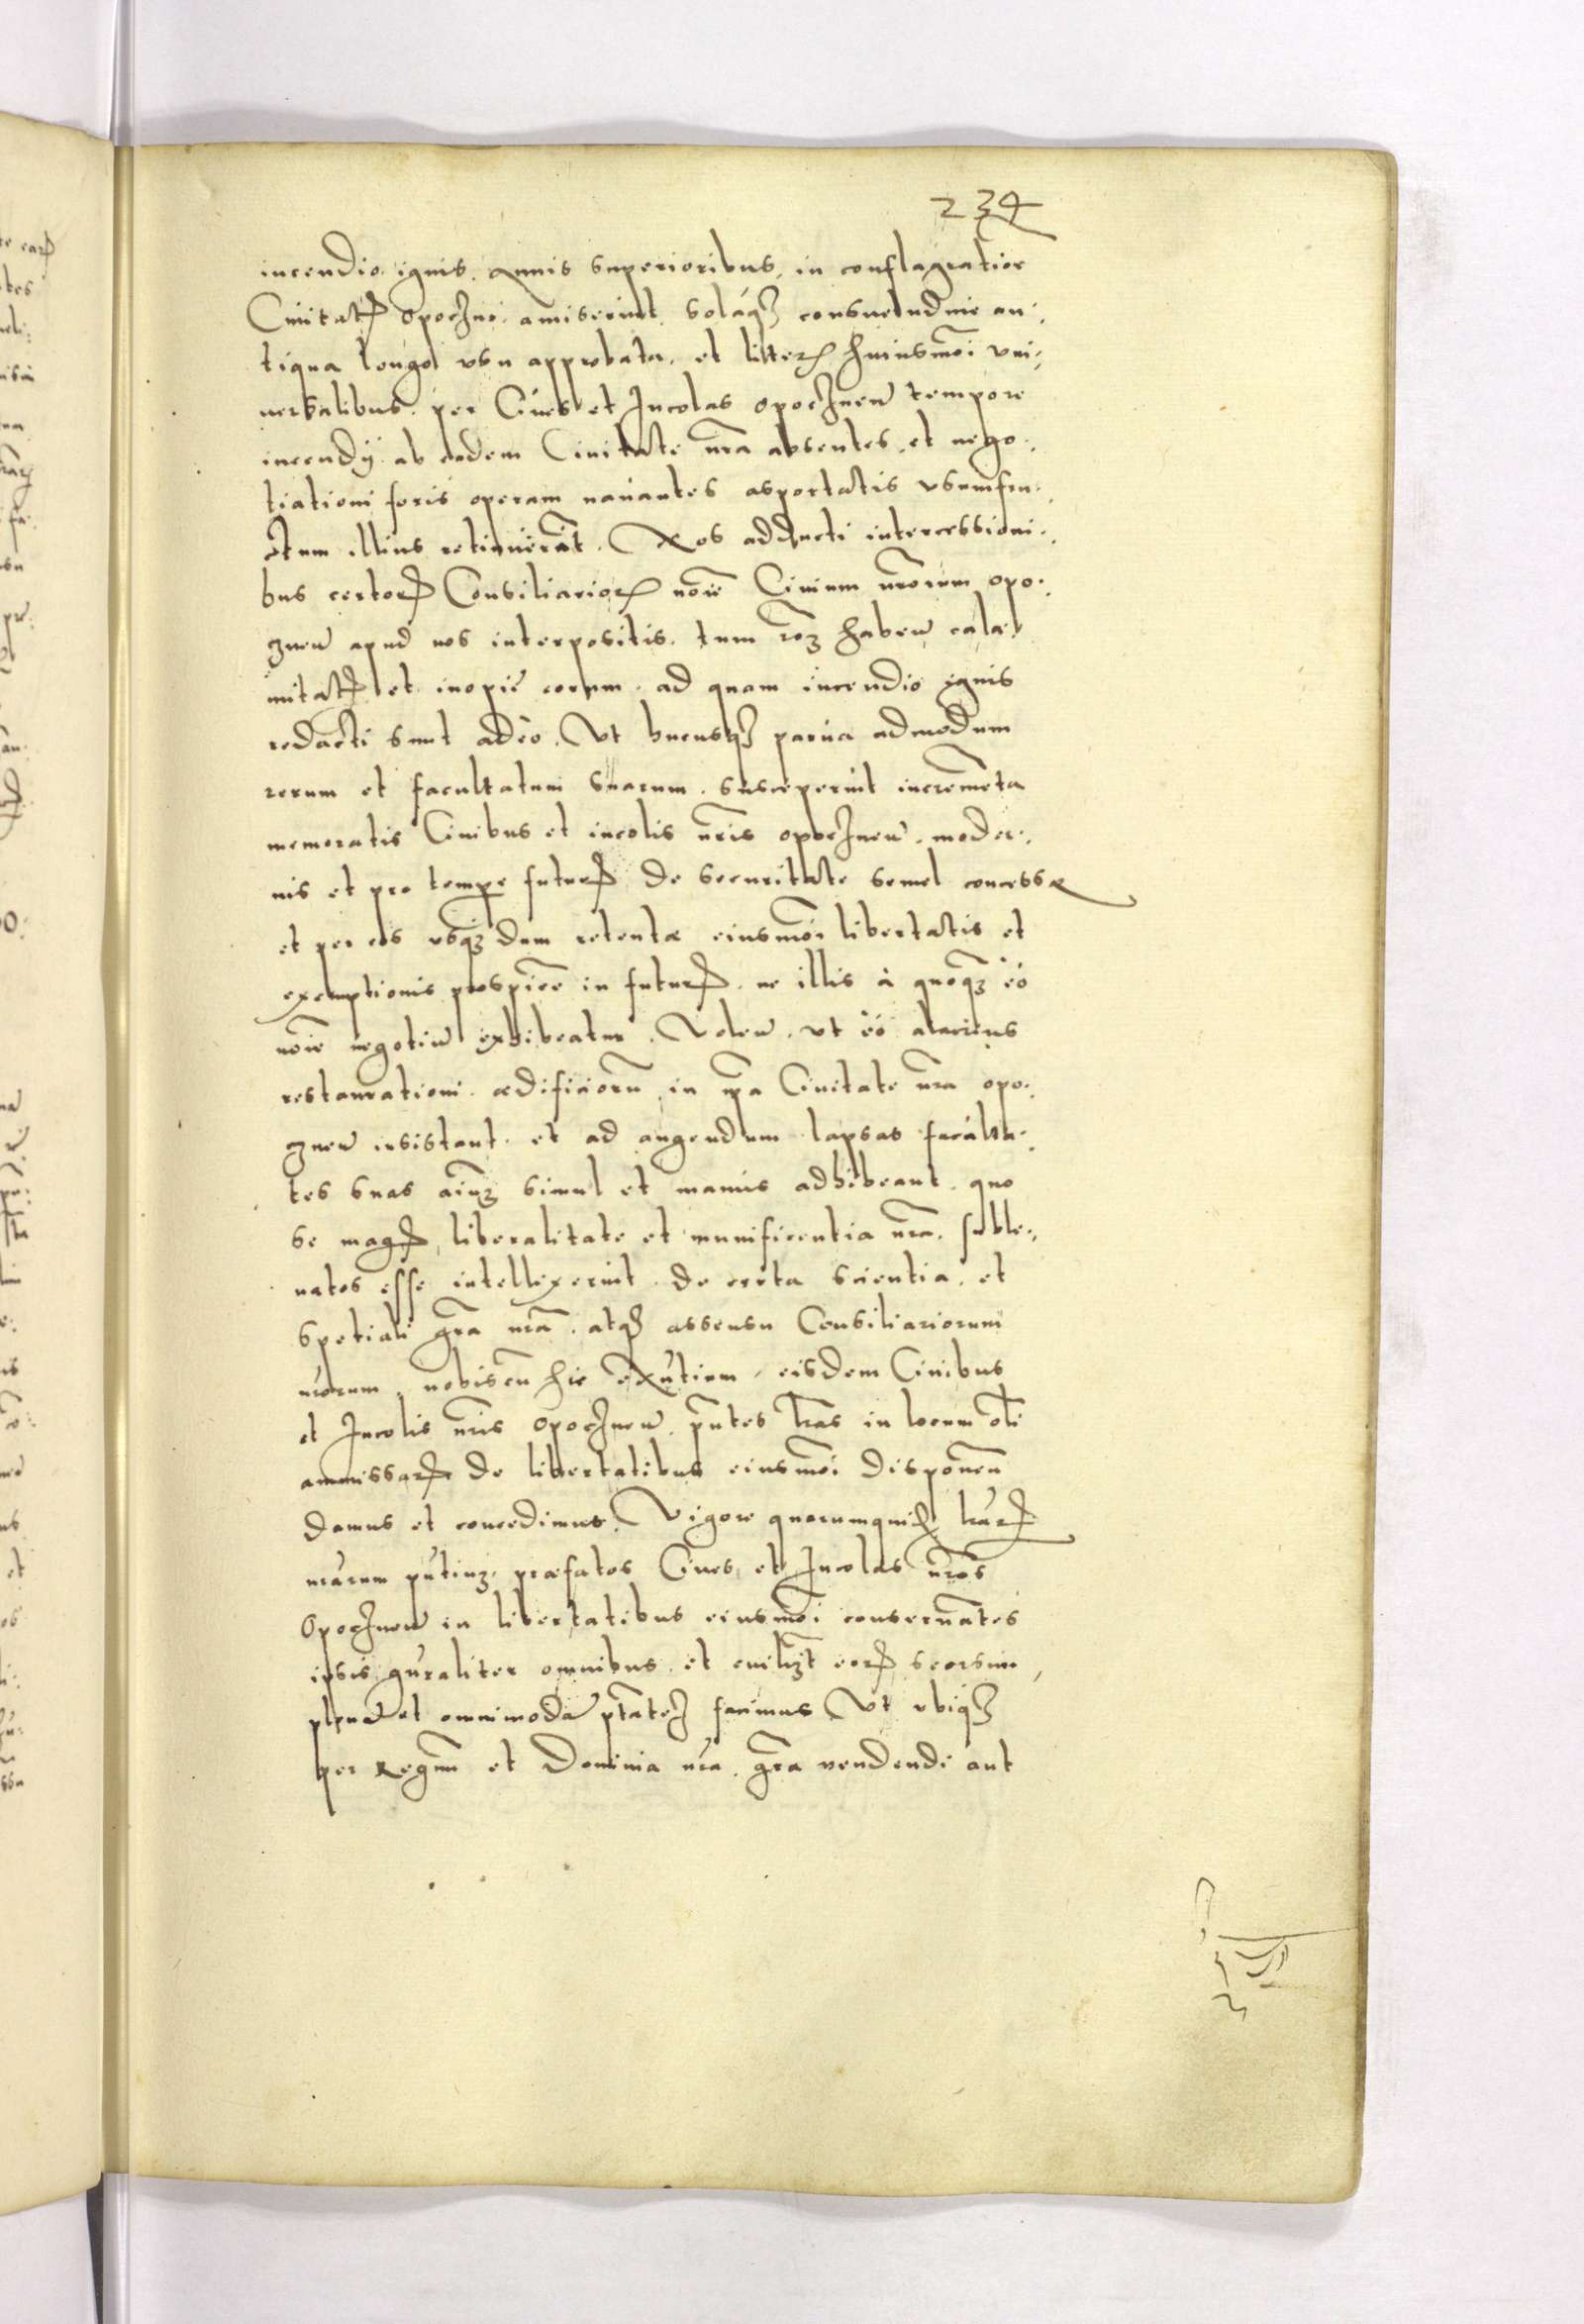 234
incendio ignis, annis superioribus, in conflagratioe
Civitatis Opoczn̄. amiserint, solaq₃ consuetudine an:
tiqua longo usu approbata, et litteris huiusmo͞i vni:
versalibus, per Cives et Incolas Opocznen̄ tempore
incendij ab eadem Civitate nr͞a absentes, et nego:
tiationi foris operam navantes asportatis vsumfru:
ctum illius retinuera͞t. Nos adducti intercessioni:
bus certor͞ Consiliarior͞ no͞ie Civium nr͞orum opo:
znen̄ apud nos interpositis, tum ro͞₃ haben̄ cala:
mitatis et inopie eorum, ad quam incendio ignis
redacti sunt adeò, Vt hucusq₃ parva admodum
rerum et facultatum suarum susceperint increme͞ta
memoratis Civibus et incolis nr͞is opocznen̄, moder:
nis et pro tempe futuris de securitate semel concessæ
et per eos vsq₃ dum retentæ eiusmo͞i libertatis et
exemptionis prospice͞ in futur͞, ne illis à quoq₃ eó
no͞ie negotiū exhibeatur. Volen̄, vt eó alacrius
restaurationi ædificiorū, in ip͞a Civitate nr͞a opo:
znen̄ insistant, et ad augendum lapsas faculta:
tes suas ai͞u₃ simul et manus adhibeant, quo
se magis liberalitate et munificentia nr͞a suble:
vatos esse intellexerint, de certa scientia, et
spetiali gr͞a nr͞a, atq₃ assensu Consiliariorum
nr͞orum, nobiscū hic exn̄tium, eisdem Civibus
et Incolis nr͞is Opocznen̄, pn͞tes lr͞as in locum oli͞
amissar͞ de libertatibus eiusmo͞i disponen̄
damus et concedimus. Vigore quarumquid͞ lr͞ar͞
nr͞arum pn͞tiu₃, præfatos Cives, et Incolas nr͞os
Opocznen̄ in libertatibus eiusmo͞i conserva͞tes
ipsis gn͞raliter omnibus, et cuili₃t eor͞ seorsim,
plenā et omnimodā pt͞ate₃ facimus Vt vbiq₃
per Regnū et Dominia nr͞a, gr͞a vendendi aut